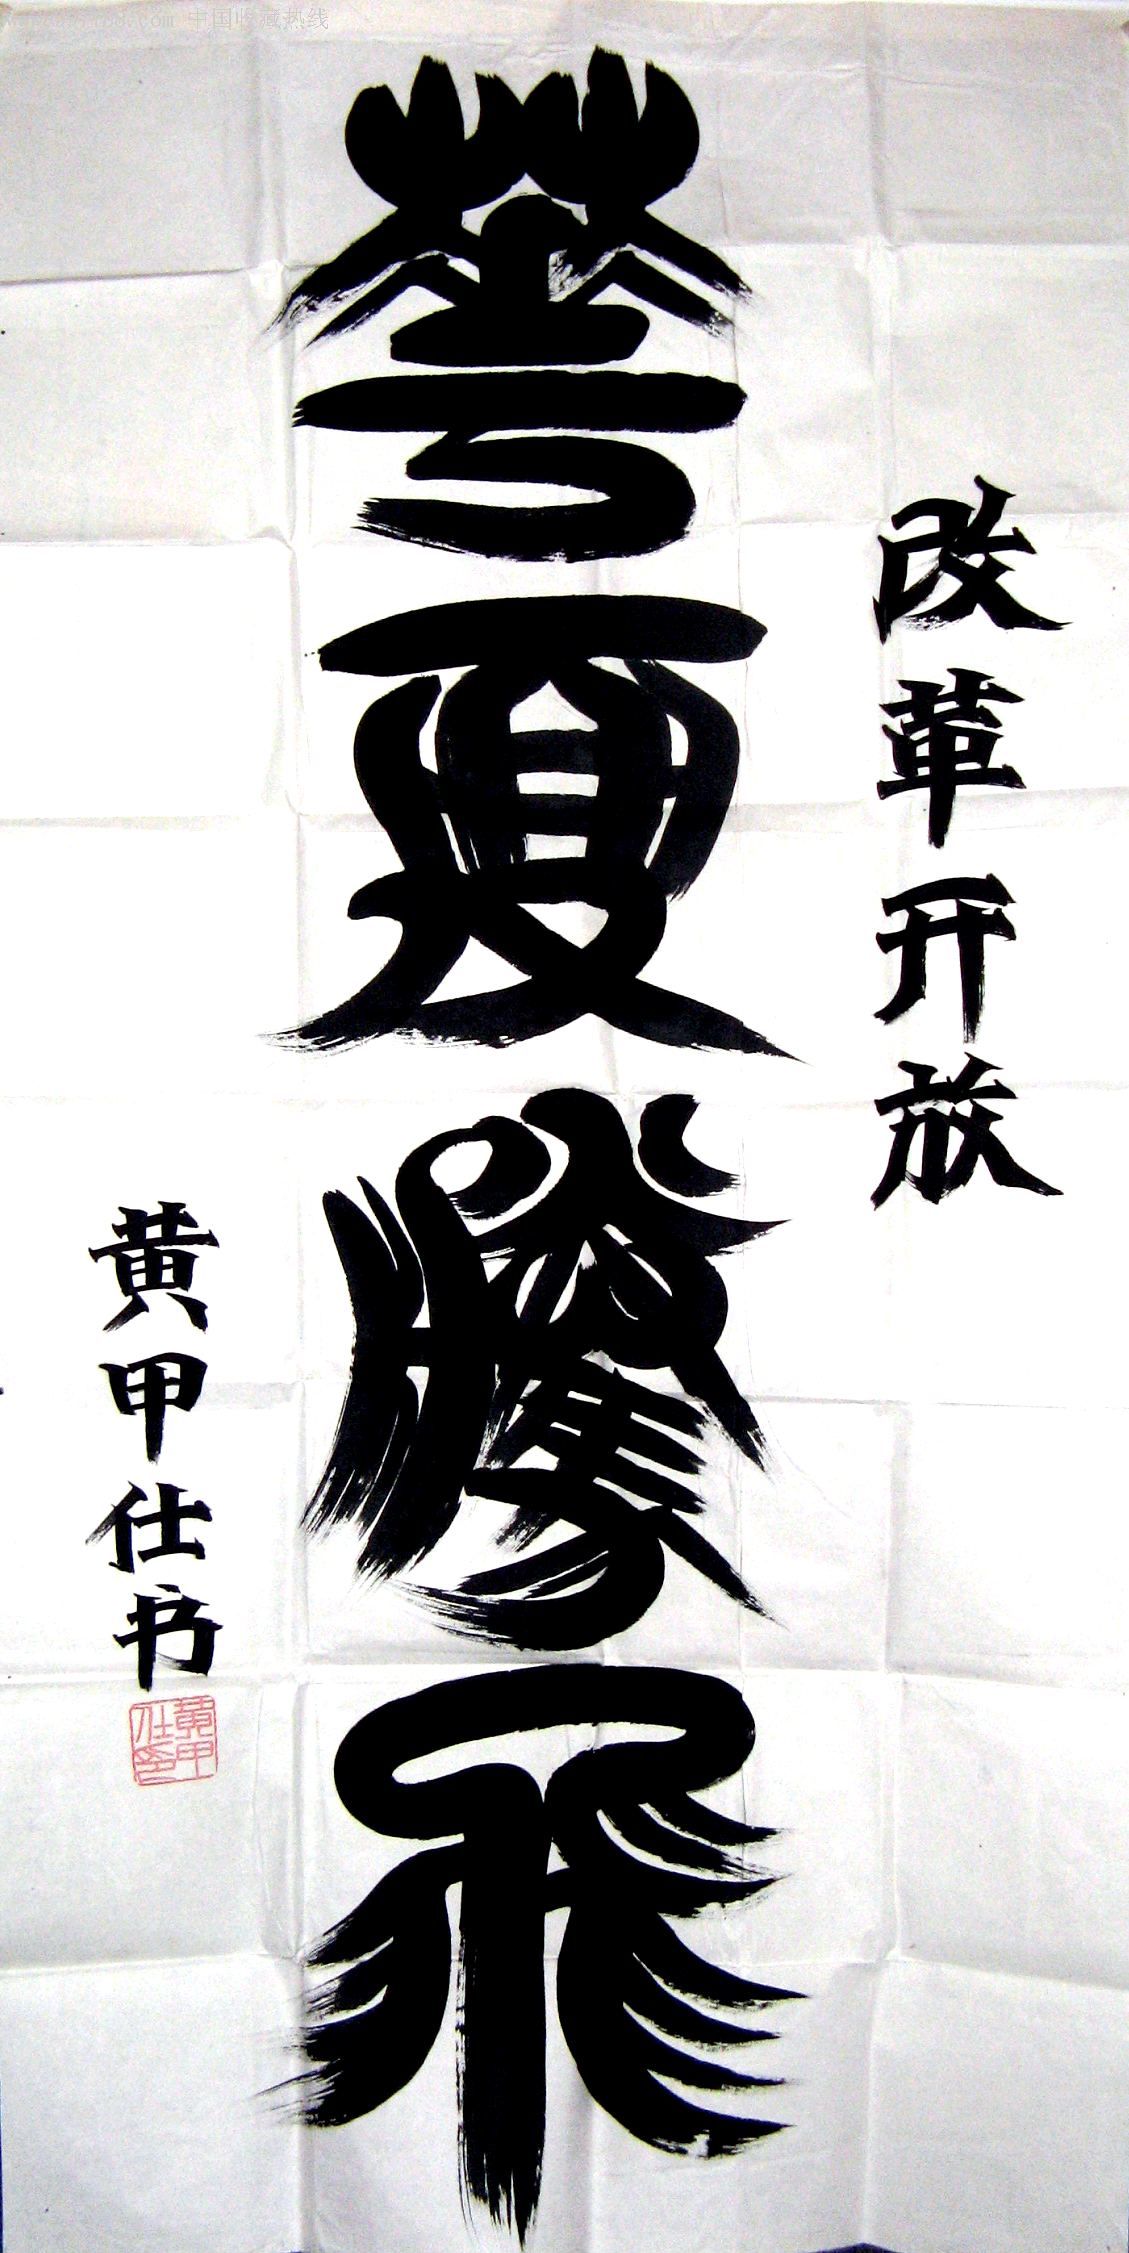 中国收藏热线
改革开放
华夏腾飞
黄甲仕书
黄甲仕印